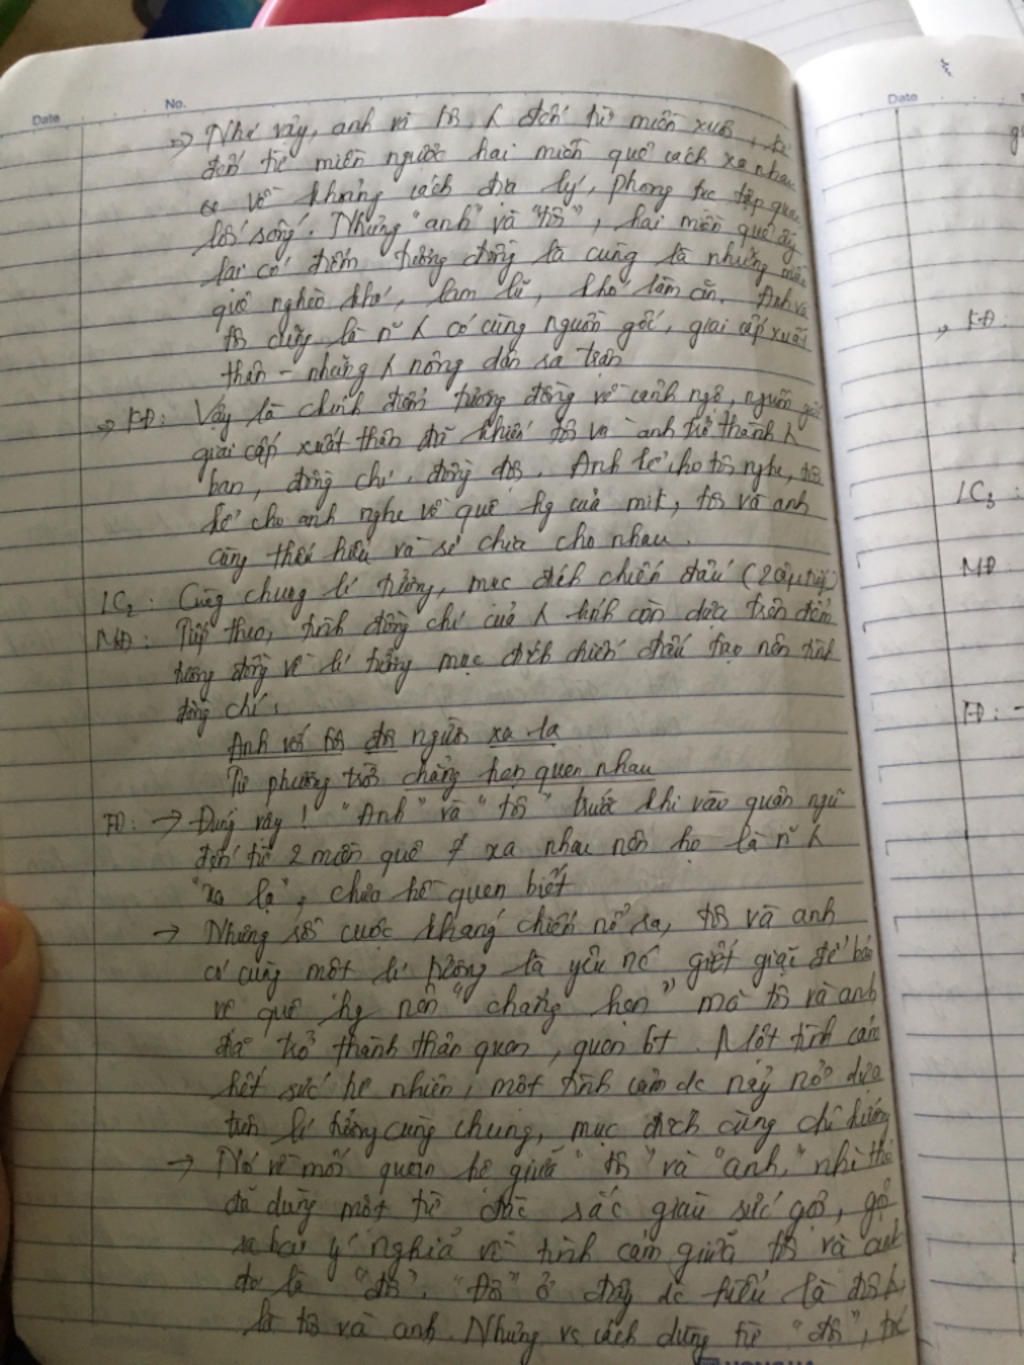 Date No.
=> Như vậy, anh và tôi, λ đến từ miền xuôi, kẻ
đến từ miền ngược hai miền quê cách xa nhau
cả về khoảng cách địa lý, phong tục tập quán
lối sống. Nhưng "anh" và "tôi", hai miền quê ấy
lại có điểm tương đồng là cùng là những miền
quê nghèo khó, lam lũ, khó làm ăn. Anh và
tôi cũng là n~ λ có cùng nguồn gốc, giai cấp xuất
thân - những λ nông dân ra trận
=> KĐ: Vậy là chính điểm tương đồng về cảnh ngộ, nguồn gốc
giai cấp xuất thân đã khiến tôi và anh trở thành λ
bạn, đồng chí, đồng đội. Anh kể cho tôi nghe, tôi
kể cho anh nghe về quê hg của mik, tôi và anh
càng thấu hiểu và sẻ chia cho nhau.
LC2: Cùng chung lí tưởng, mục đích chiến đấu (2 câu tiếp)
MĐ: Tiếp theo, tình đồng chí của λ lính còn dựa trên điểm
tương đồng về lí tưởng mục đích chiến đấu tạo nên tình
đồng chí:
Anh với tôi đôi người xa lạ
Tự phương trời chẳng hẹn quen nhau
TĐ: → Đúng vậy! "Anh" và "tôi" trước khi vào quân ngũ
đến từ 2 miền quê ≠ xa nhau nên họ là n~ λ
"xa lạ", chưa hề quen biết
→ Nhưng rồi cuộc kháng chiến nổ ra, tôi và anh
có cùng một lí tưởng là yêu nc' giết giặc để bảo
vệ quê hg nên "chẳng hẹn" mà tôi và anh
đã trở thành thân quen, quen bt. Một tình cảm
hết sức tự nhiên, một tình cảm đc nảy nở dựa
trên lí tưởng cùng chung, mục đích cùng chí hướng
→ Nói về mối quan hệ giữa "tôi" và "anh," nhà thơ
đã dùng một từ đặc sắc giàu sức gợi, gợi
ra bao ý nghĩa về tình cảm giữa tôi và anh
đó là "đôi". "Đôi" ở đây đc hiểu là đôi λ
là tôi và anh. Nhưng vs cách dùng từ "đôi", tác
Date
KĐ:
LC3:
MĐ:
TĐ: -